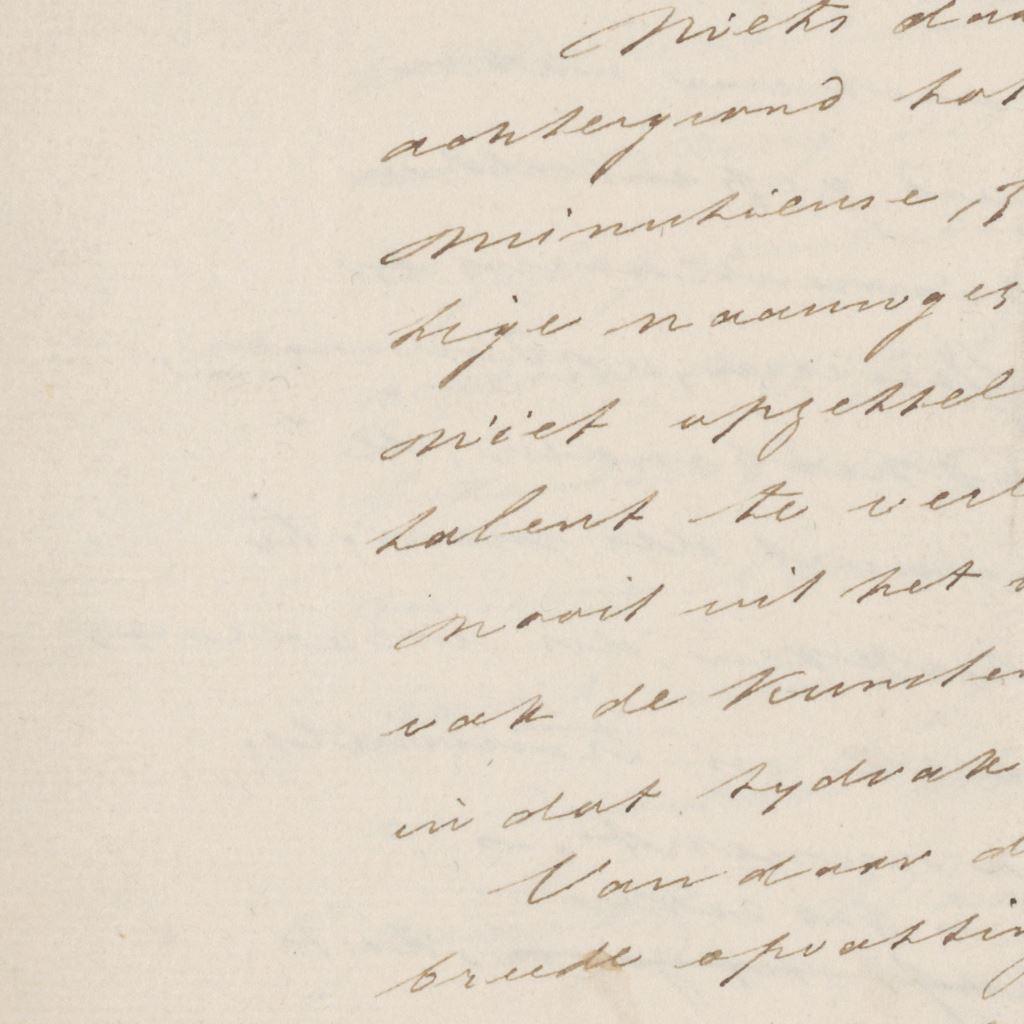 Niets daa
achtergrond tot
minutieuse, z
tige naauwgez
niet opgestel
talent te verl
nooit uit het
vak de Kunsten
in dat tydvak
Van daar d
breede opvattin